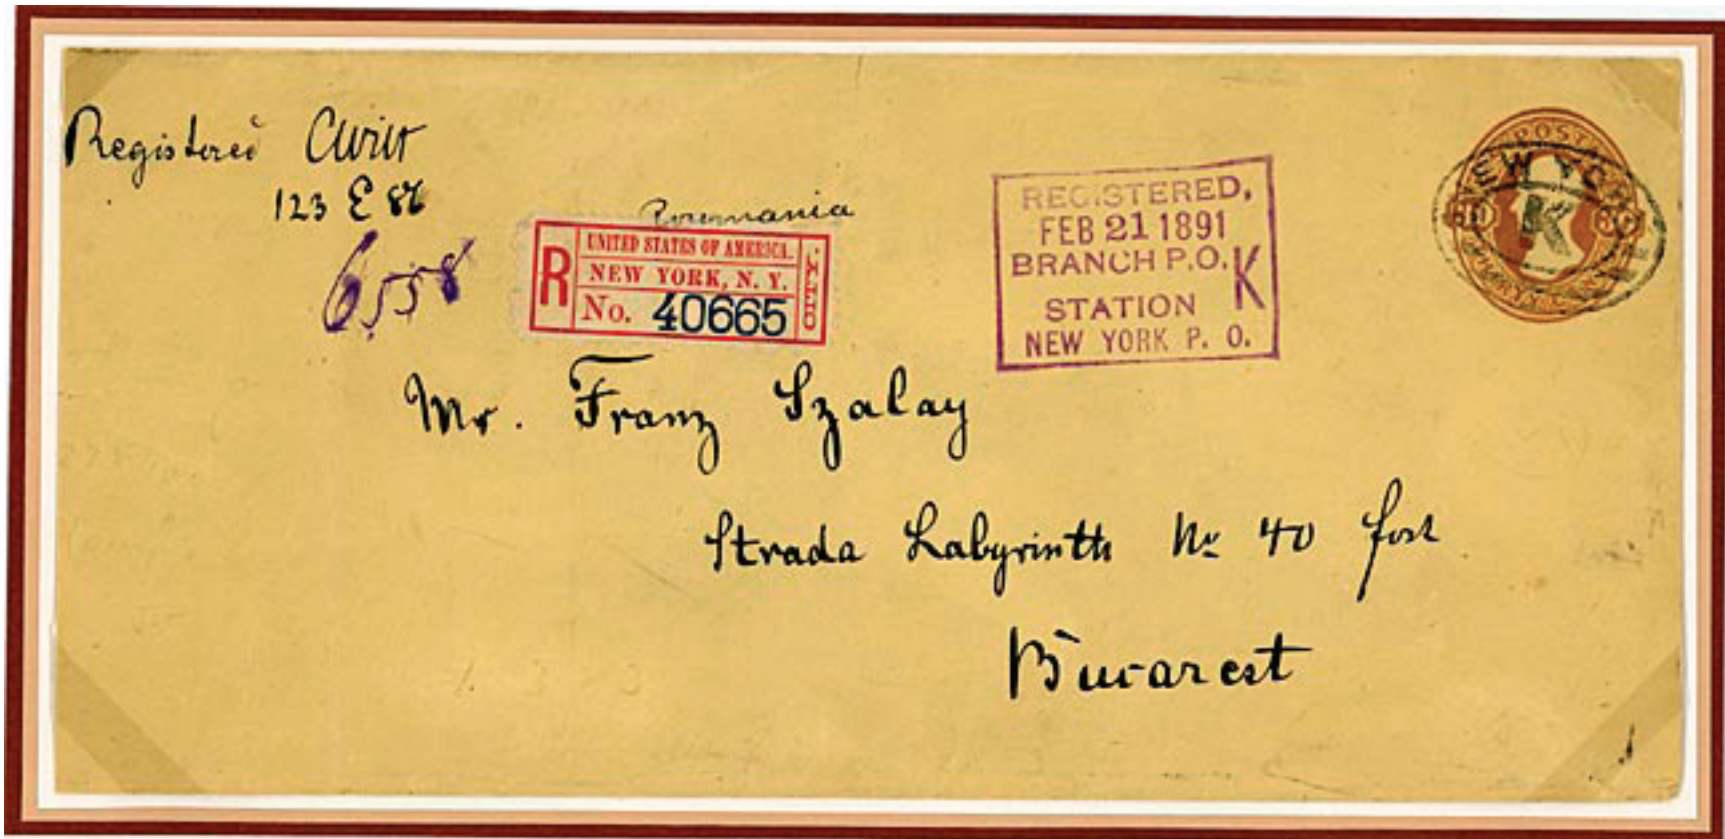 Registered
123 E 86
6558
Roumania
R
UNITED STATES OF AMERICA.
NEW YORK, N. Y.
No. 40665
REGISTERED,
FEB 21 1891
BRANCH P.O.
STATION K
NEW YORK P. O.
NEW YORK
K
Mr. Franz Szalay
Strada Labyrinth No 40
Bucarest